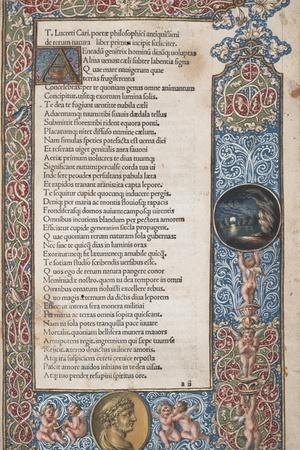 T. Lucreti Cari. poetæ philosophici antiquissimi
de rerum natura liber primus incipit fœliciter.
Aeneadū genitrix hominū diuūq; uoluptas
Alma uenus: cæli subter labentia signa
Quæ mare nauigerum quæ
terras frugiferentis
Concelebras: per te quoniam genus omne animantum
Concipitur. uisitq; exortum lumina solis.
Te dea te fugiunt uenti: te nubila cæli
Aduentumq; tuum: tibi suauis dædala tellus
Submittit flores: tibi rident equora ponti.
Placatumq; nitet diffuso numine cælum.
Nam simulas species patefacta est uerna diei
Et reserata uiget genitalis aura fauoni
Aeriæ primum uolucres te diua tuumq;
Significant initum percussæ corda tua ui
Inde feræ pecudes persultans pabula læta
Et rapidos tranant amnis: ita capta lepore.
Te sequitur cupide quocunq; inducere pergis.
Deniq; per maria ac montis fluuiosq; rapaces
Frondiferasq; domos auium: camposq; uirentis
Omnibus incutiens blandum per pectora amorem
Efficis: ut cupide generatim sæcla propagent.
Quæ quoniam rerum naturam sola gubernas:
Nec sine te quicq̄ dias in luminis oras
Exoritur: neq; fit lætum: neq; amabile quicq̄.
Te sociam studio scribendis uersibus esse.
Quos ego de rerum natura pangere conor
Meminiadæ nostro. quem tu dea tempore in omni
Omnibus ornatum noluisti excellere rebus.
Quo magis æternum da dictis diua leporem
Effice: ut interea fera mœnera
Per maria ac terras omnis sopita quiescant.
Nam tu sola potes tranquilla pace iuuare
Mortalis. quoniam belli fera munera mauors
Armipotens regit. ingremium qui sæpe tuum se
Reicit. æterno deuictus uulnere amoris.
Atq; ita suspiciens cereti ceruice reposta
Pascit amore auidos inhians in te dea uisus.
Atq; tuo pendet resupini spiritus ore.
a ii